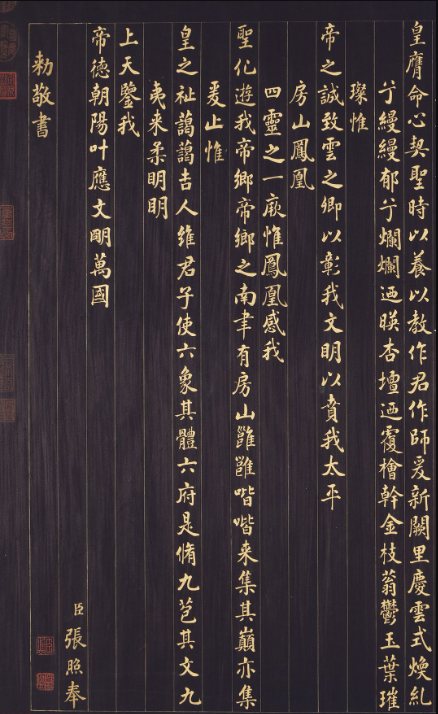 皇膺命心契聖時以養以教作君作師爰新闕里慶雲式煥糺
兮縵縵郁兮爛爛迺暎杏壇迺覆檜幹金枝蓊鬱玉葉璀
璨惟
帝之誠致雲之卿以彰我文明以賁我太平
房山鳳凰
四靈之一厥惟鳳凰感我
聖化遊我帝鄉帝鄉之南聿有房山雝雝喈喈来集其巔亦集
爰止惟
皇之祉藹藹吉人維君子使六象其體六府是脩九苞其文九
夷来柔明明
上天鑒我
帝德朝陽叶應文明萬國
臣張照奉
勅敬書